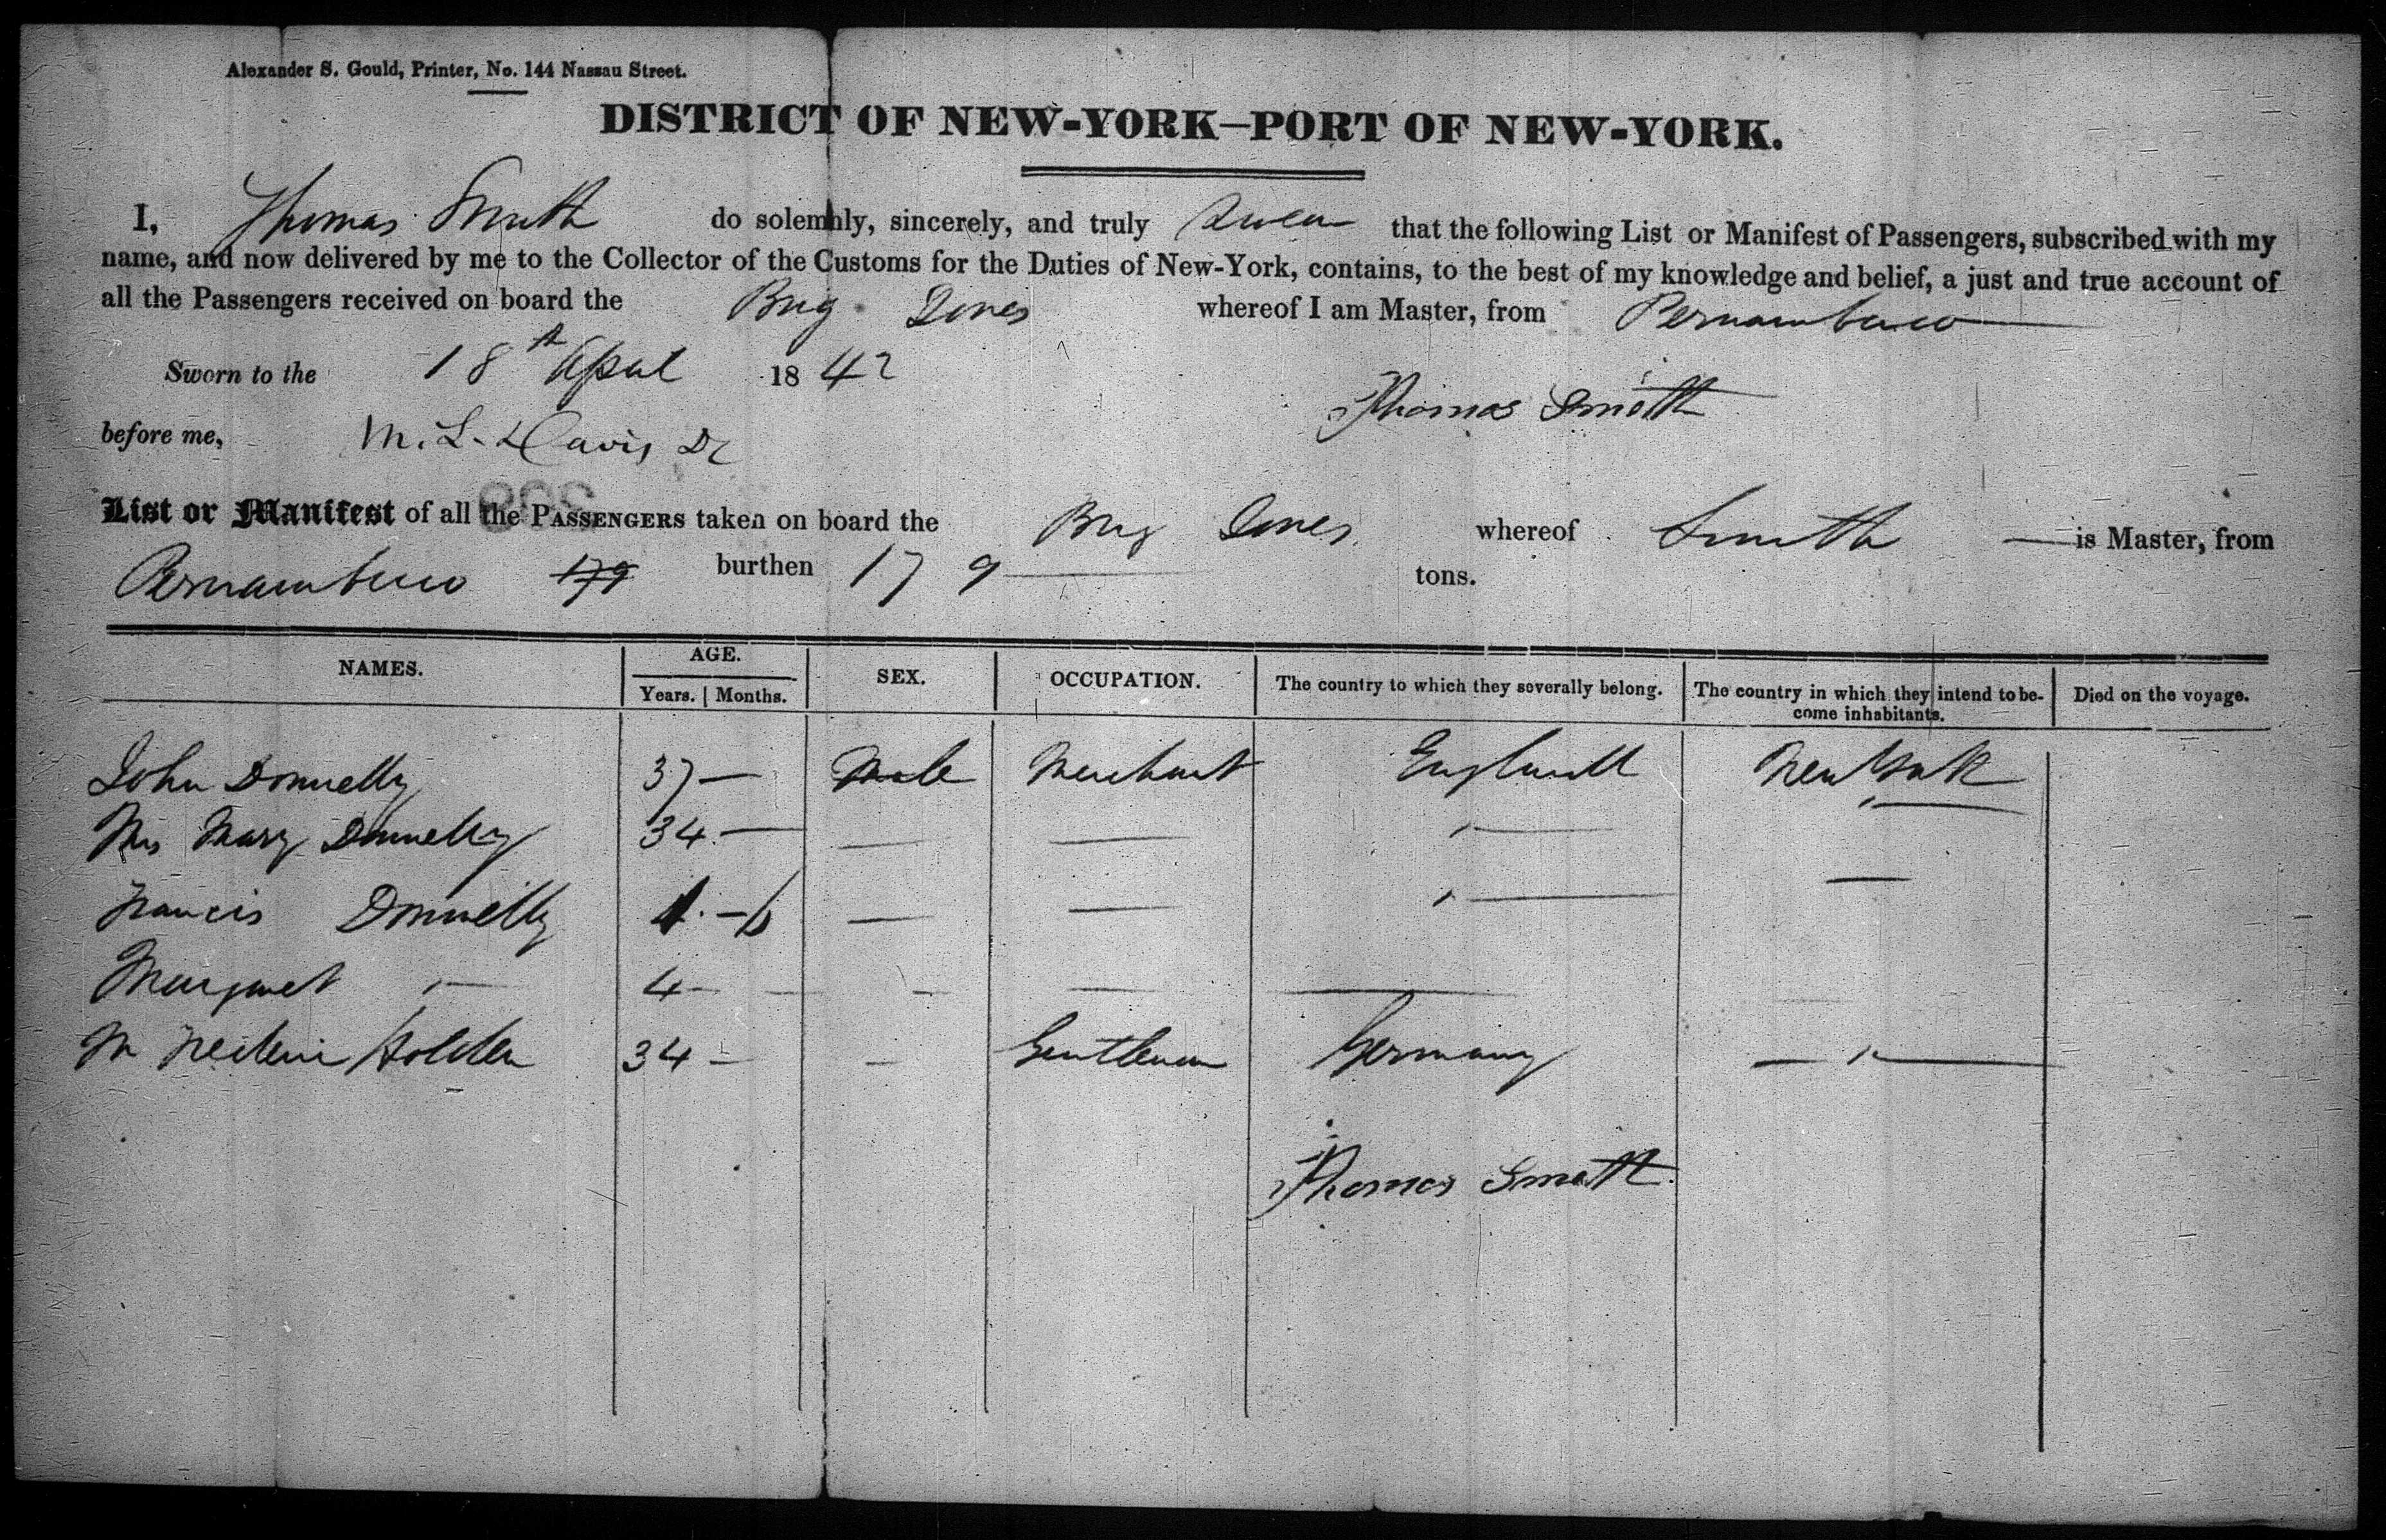 Alexander S. Gould, Printer, No. 144 Nassau Street.
DISTRICT OF NEW-YORK—PORT OF NEW-YORK.
I, Thomas Smith do solemnly, sincerely, and truly swear that the following List or Manifest of Passengers, subscribed with my
name, and now delivered by me to the Collector of the Customs for the Duties of New-York, contains, to the best of my knowledge and belief, a just and true account of
all the Passengers received on board the Brig whereof I am Master, from Pernambuco
Sworn to the 18th April 1842
Thomas Smith
before me, M. L. Davis
List or Manifest of all the PASSENGERS taken on board the Brig whereof Smith — is Master, from
Pernambuco 179 burthen 179 tons.
NAMES. AGE. SEX. OCCUPATION. The country to which they severally belong. The country in which they intend to be- Died on the voyage.
Years. Months. come inhabitants.
John Donnelly 37 — Male Merchant England New York
Mrs Mary Donnelly 34 — — — " — " —
Francis Donnelly 1 - 6 — — " — —
Margaret " — 4 — — — — —
Mr Holden 34 — — Gentleman Germany — " —
Thomas Smith